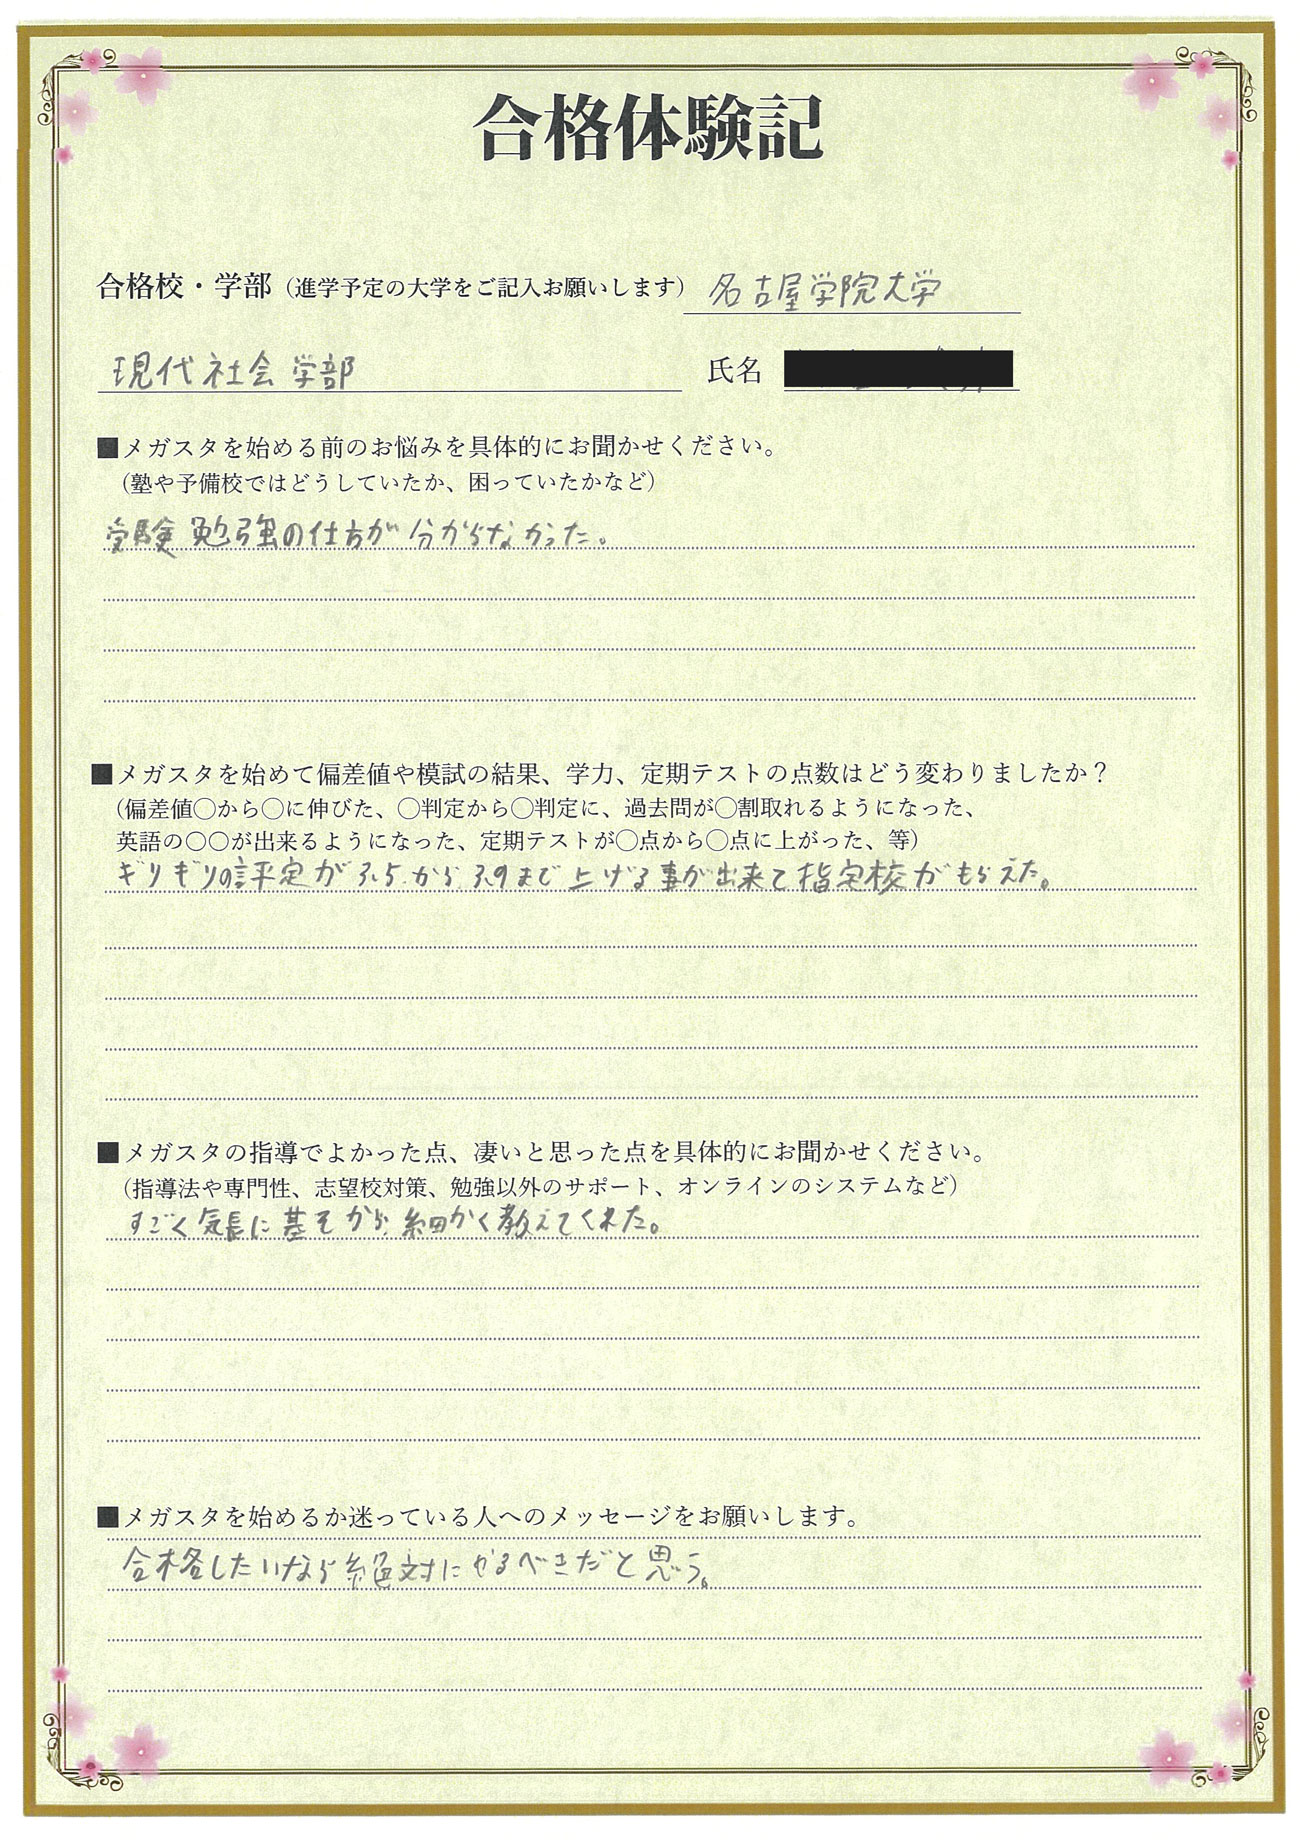 合格体験記
合格校・学部（進学予定の大学をご記入お願いします） 名古屋学院大学
現代社会学部 氏名
■メガスタを始める前のお悩みを具体的にお聞かせください。
（塾や予備校ではどうしていたか、困っていたかなど）
受験勉強の仕方が分からなかった。
■メガスタを始めて偏差値や模試の結果、学力、定期テストの点数はどう変わりましたか？
（偏差値〇から〇に伸びた、〇判定から〇判定に、過去問が〇割取れるようになった、
英語の〇〇が出来るようになった、定期テストが〇点から〇点に上がった、等）
ギリギリの評定が3.5から3.9まで上げる事が出来て指定校がもらえた。
■メガスタの指導でよかった点、凄いと思った点を具体的にお聞かせください。
（指導法や専門性、志望校対策、勉強以外のサポート、オンラインのシステムなど）
すごく気長に基そから細かく教えてくれた。
■メガスタを始めるか迷っている人へのメッセージをお願いします。
合格したいなら絶対にやるべきだと思う。